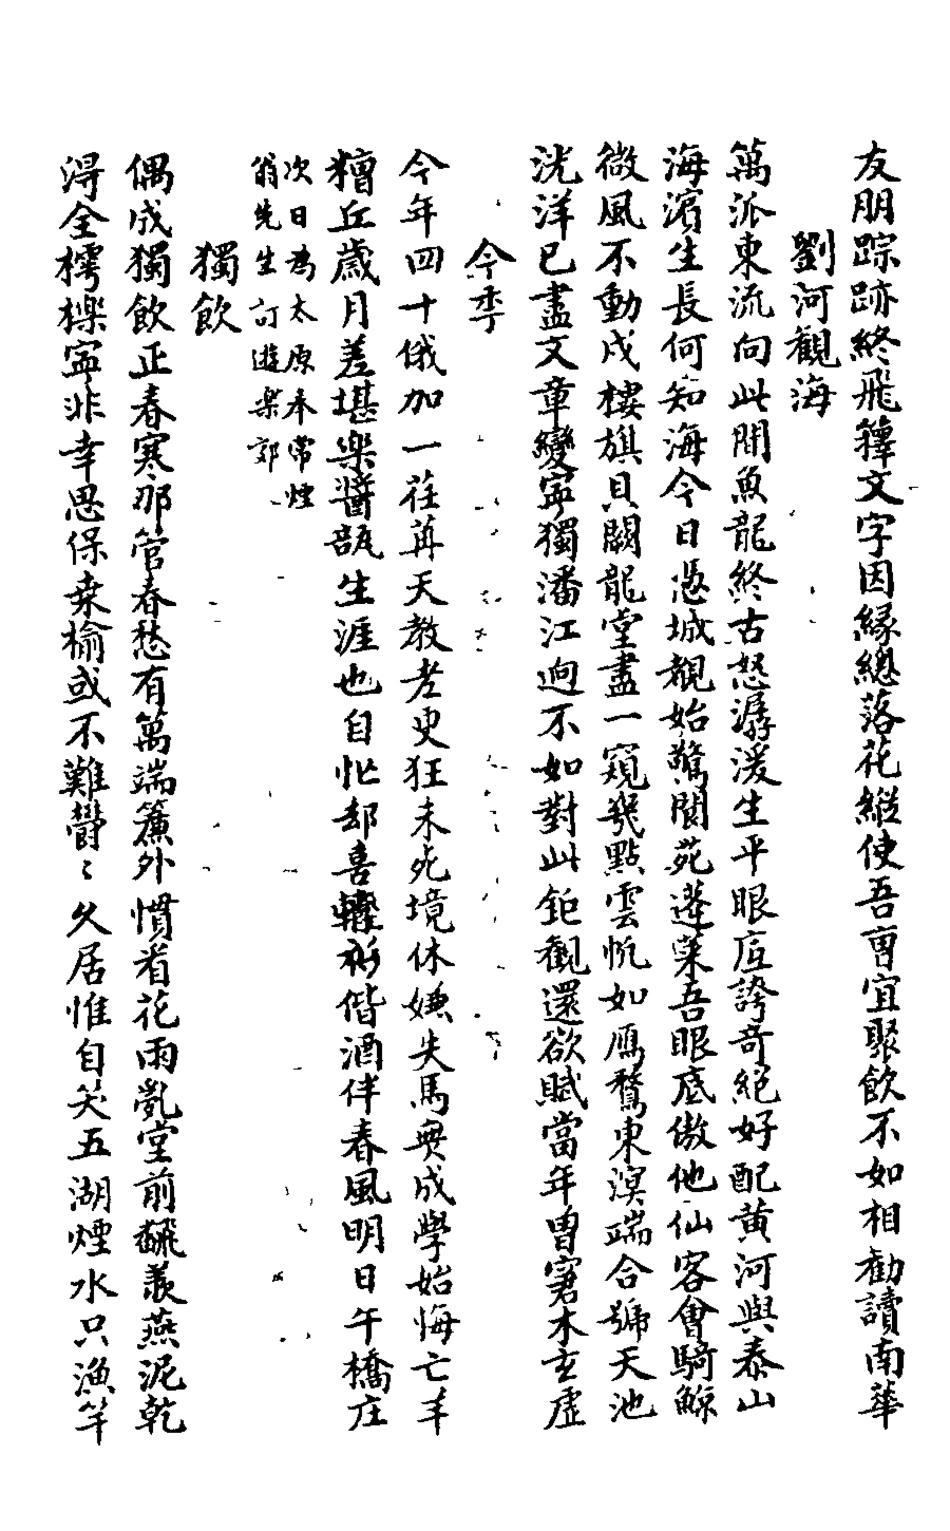 友朋踪跡終飛籜文字因緣總落花縱使吾曹宜聚飲不如相勸讀南華
劉河觀海
萬派東流向此開魚龍終古怒潺湲生平眼底誇奇絕好配黃河與泰山
海濱生長何知海今日憑城觀始驚閬苑蓬萊吾眼底傲他仙客會騎鯨
微風不動戍樓旗貝闕龍堂盡一窺幾點雲帆如鴈鶩東溟端合號天池
洸洋已盡文章變寧獨潘江逈不如對此鉅觀還欲賦當年曾窘木玄虛
今年
今年四十俄加一荏苒天教老更狂未死境休嫌失馬無成學始悔亡羊
糟丘歲月差堪樂醬瓿生涯也自忙却喜郊偕酒伴春風明日午橋庄
次日為太原奉常煙
翁先生訂遊樂郊
獨飲
偶成獨飲正春寒那管春愁有萬端簾外慣看花雨亂堂前飜羨燕泥乾
得全樗櫟寧非幸思保桒榆或不難鬱〻久居惟自笑五湖煙水只漁竿